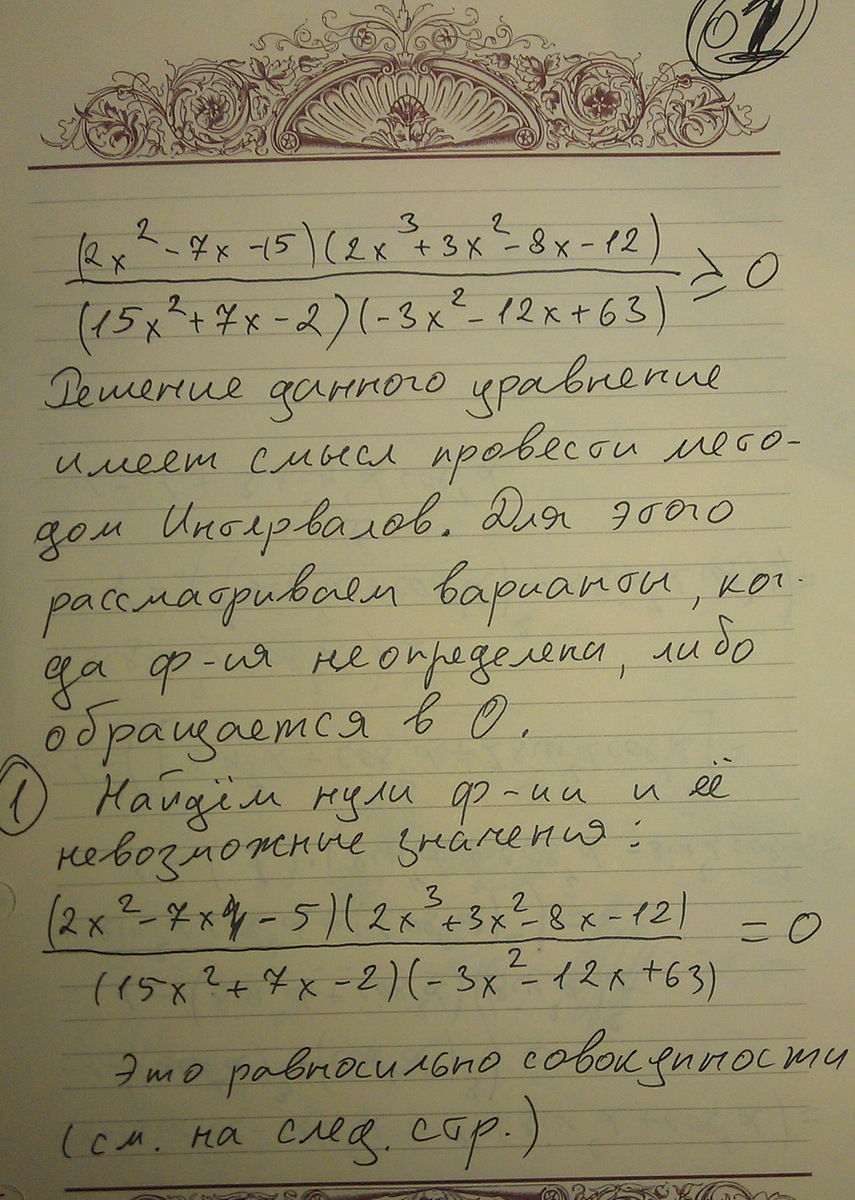 01
(2x² - 7x - 15)(2x³ + 3x² - 8x - 12)
(15x² + 7x - 2)(-3x² - 12x + 63)
≥ 0
Решение данного уравнение
имеет смысл провести мето-
дом Интервалов. Для этого
рассматриваем варианты, ког-
да ф-ия неопределена, либо
обращается в 0.
1 Найдём нули ф-ии и её
невозможные значения:
(2x² - 7x - 5)(2x³ + 3x² - 8x - 12)
(15x² + 7x - 2)(-3x² - 12x + 63)
= 0
Это равносильно совокупности
(см. на след. стр.)